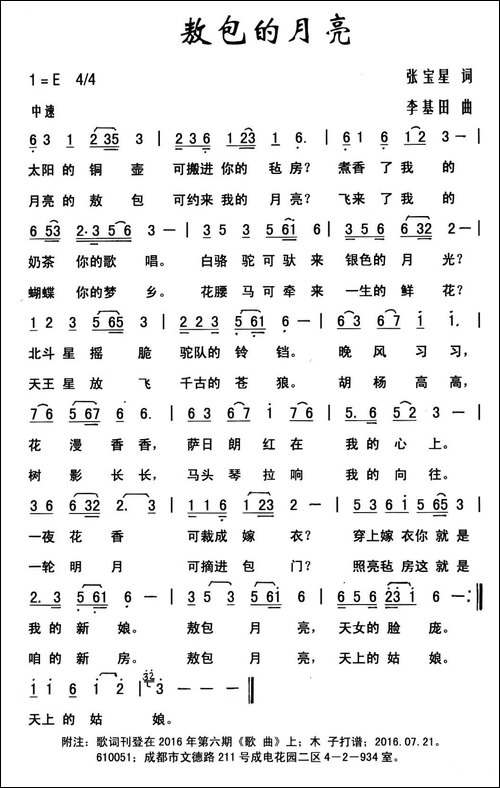 敖包的月亮
1=E 4/4
张宝星 词
中速
李基田 曲
6 3 1 2 35 3 | 2 3 6 1 23 1 6. | 6 1 6 1 2 3 - |
太阳的铜壶 可搬进你的毡房？ 煮香了我的
月亮的敖包 可约来我的月亮？ 飞来了我的
6 53 2·3 5 6 3 - | 3 5 3 5 61 6 | 3 5 6 6 32 2 - |
奶茶 你的歌唱。 白骆驼可驮来 银色的月光？
蝴蝶 你的梦乡。 花腰马可牵来 一生的鲜花？
1 2 3 5 65 3 | 2 2 3 5 61 6 - | 6 3 6 7 1 1. |
北斗星摇脆 驼队的铃铛。 晚风习习，
天王星放飞 千古的苍狼。 胡杨高高，
7 6 5 67 6 6. | 6 3 6 7 1 7 6 | 5. 6 5 2 3 - |
花漫香香， 萨日朗红在 我的心上。
树影长长， 马头琴拉响 我的向往。
3 6 6 32 2. 3 | 1 1 6 1 23 2 | 5 3 6 1 5 65 3 |
一夜花香 可裁成嫁衣？ 穿上嫁衣你就是
一轮明月 可摘进包门？ 照亮毡房这就是
2. 3 5 61 6 - | 3 5 3 5 61 | 5 6 6 23 1 6 - :‖
我的新娘。 敖包月亮， 天女的脸庞。
咱的新房。 敖包月亮， 天上的姑娘。
1 1 6 1 2 - - - ‖
天上的姑娘。
附注：歌词刊登在2016年第六期《歌曲》上；木子打谱；2016.07.21。
610051；成都市文德路211号成电花园二区4－2－934室。